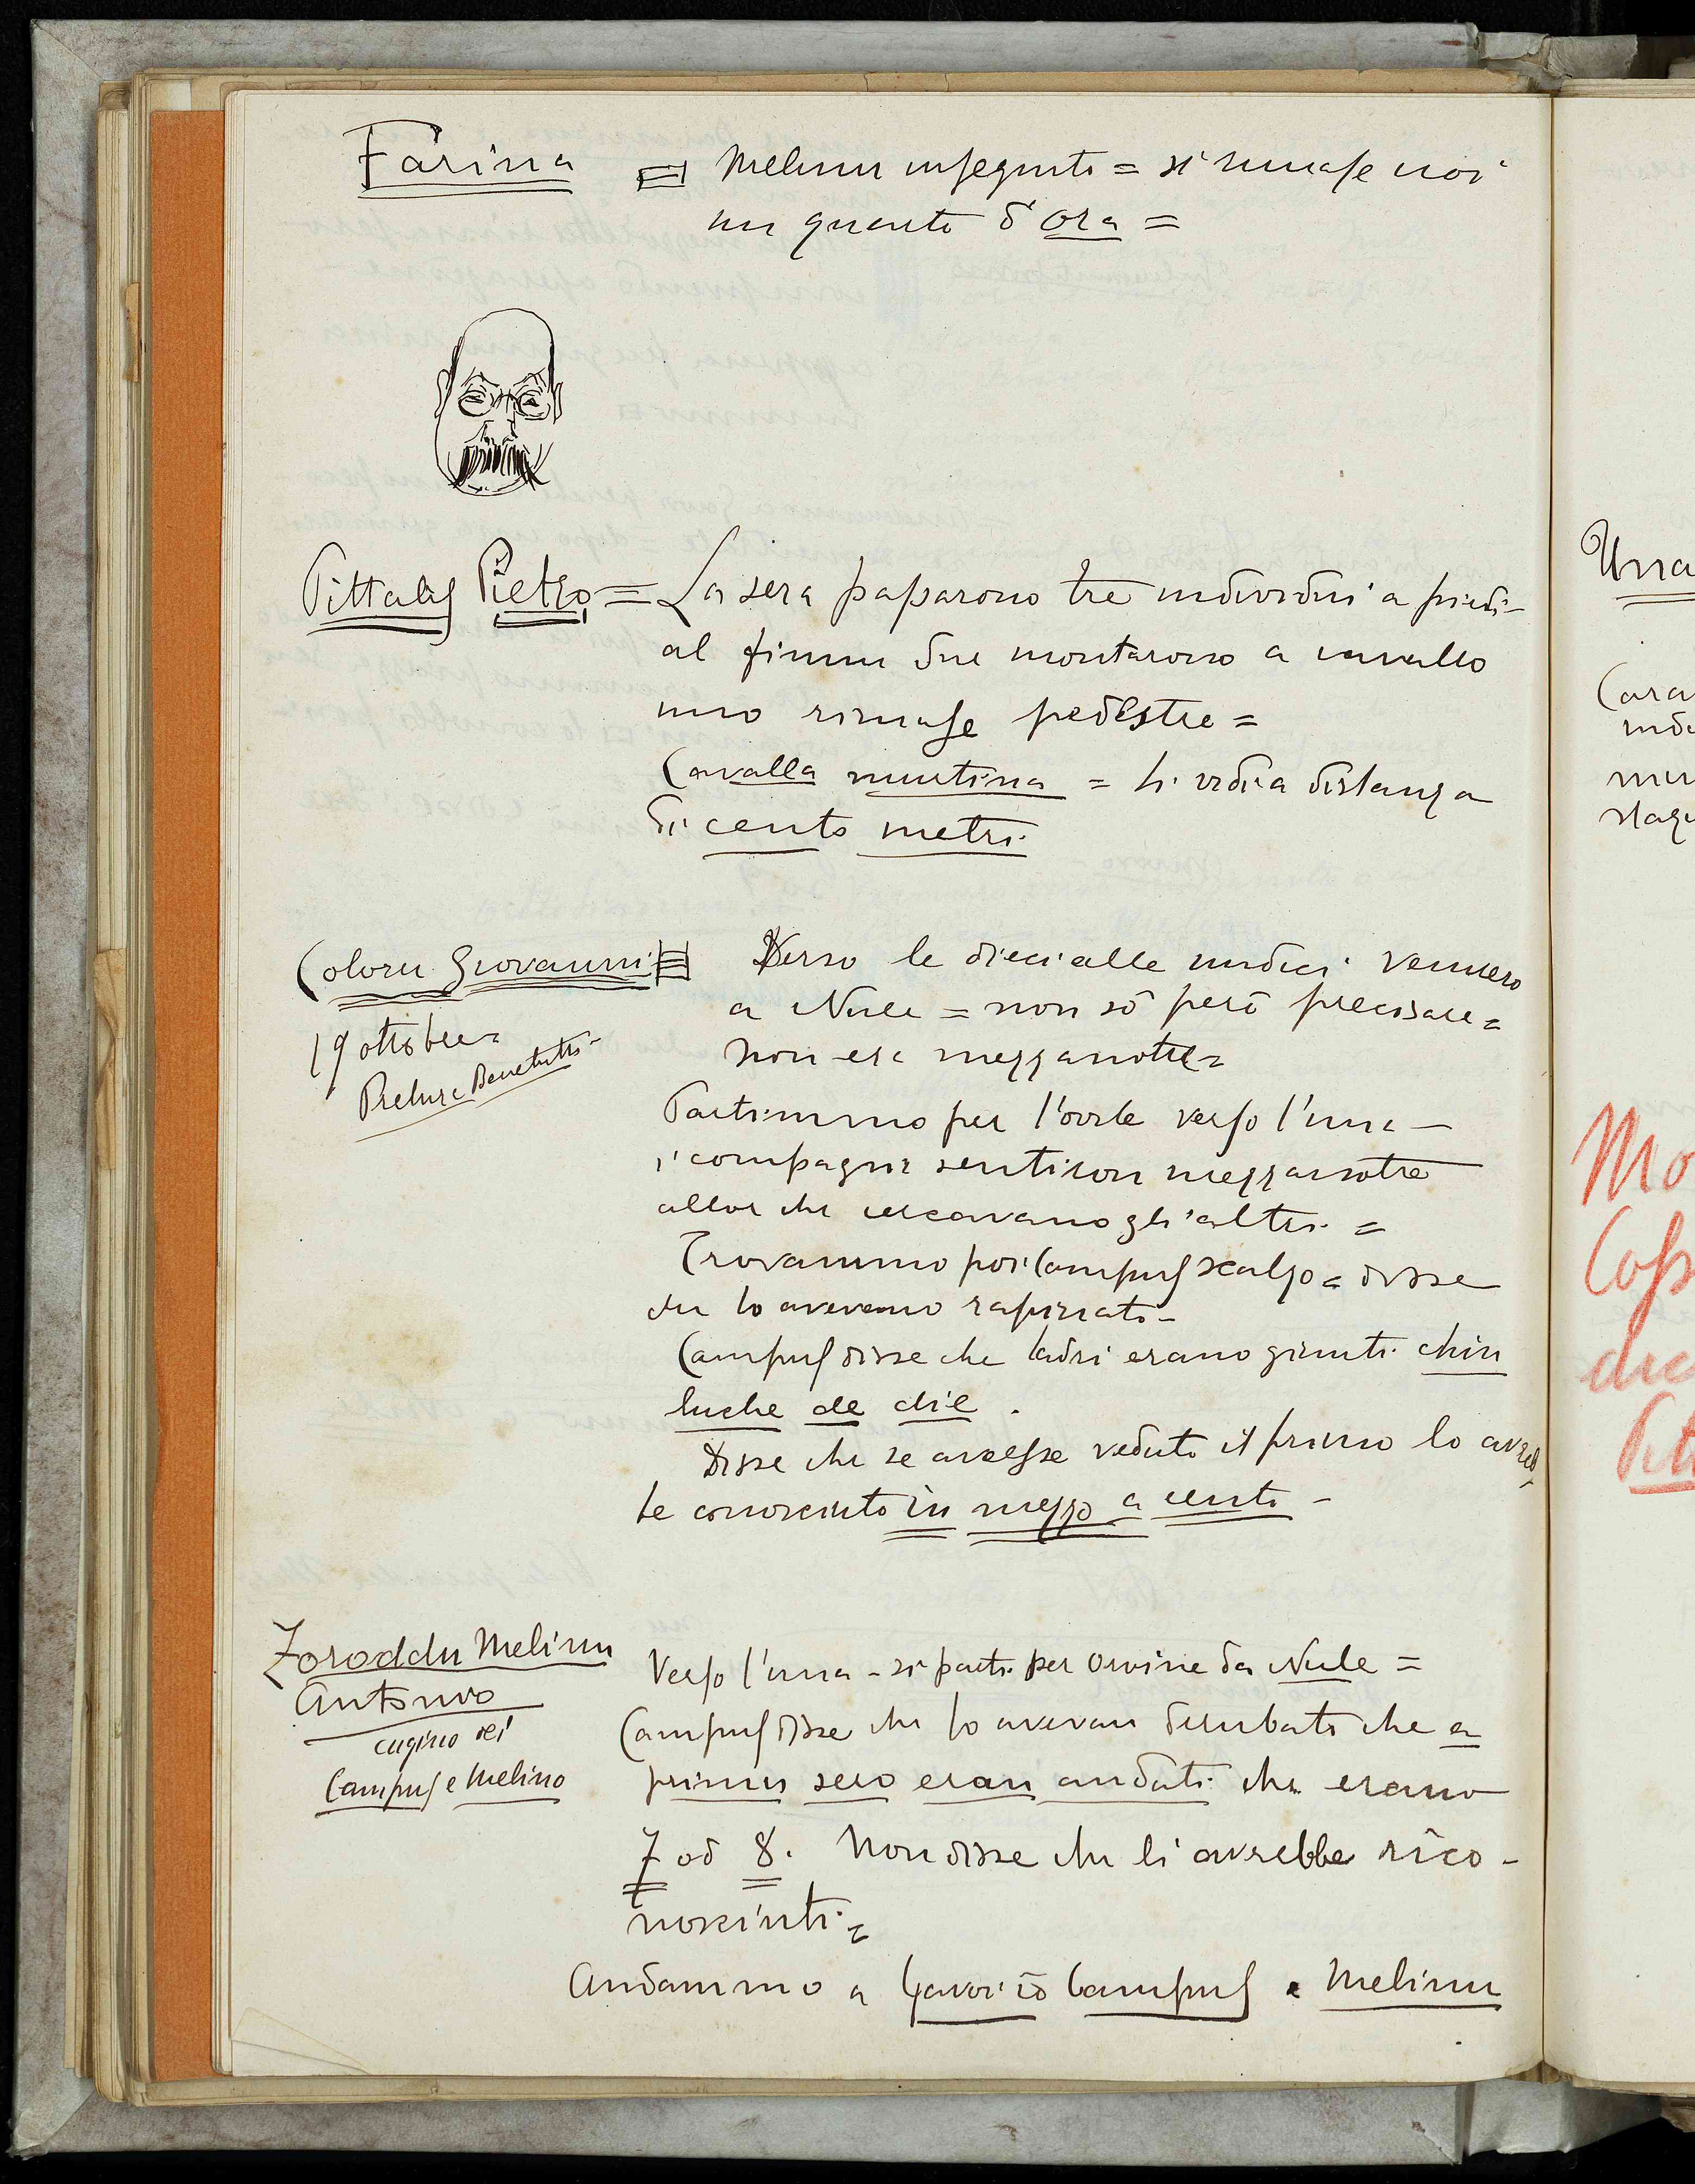 Farina = Melinu inseguito = si rimase noi
un quarto d'ora =
Pittalis Pietro = La sera passarono tre individui a piedi -
al fiume due montarono a cavallo
uno rimase pedestre =
Cavalla murtina = li vidi a distanza
di cento metri
Coloru Giovanni = Verso le dieci alle undici vennero
a Nule = non sò però precisare =
19 ottobre =
non era mezzanotte =
Pretura Benetutti -
Partimmo per l'ovile verso l'una -
i compagni sentiron mezzanotte
allor che cercavano gli altri =
Trovammo poi Campus scalzo = disse
che lo avevano rapinato -
Campus disse che ladri erano giunti chin
luche de die .
Disse che se avesse veduto il primo lo avreb
be conosciuto in mezzo a cento -
Zoroddu Melinu
Antonio
cugino dei
Campus e Melino
Verso l'una - si partì per ovine da Nule =
Campus disse che lo avevan derubato che a
primu sero eran andati che erano
7 od 8. Non disse che li avrebbe rico -
nosciuti =
Andammo a Campus e Melinu
Urra
Cara
indi
Mo